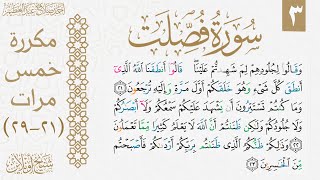 ٣
سورة فصلت
مكررة
خمس
مرات
(٢١-٢٩)
وَقَالُوا لِجُلُودِهِمْ لِمَ شَهِدتُّمْ عَلَيْنَا قَالُوا أَنطَقَنَا اللَّهُ الَّذِي
أَنطَقَ كُلَّ شَيْءٍ وَهُوَ خَلَقَكُمْ أَوَّلَ مَرَّةٍ وَإِلَيْهِ تُرْجَعُونَ ٢١
وَمَا كُنتُمْ تَسْتَتِرُونَ أَن يَشْهَدَ عَلَيْكُمْ سَمْعُكُمْ وَلَا أَبْصَارُكُمْ
وَلَا جُلُودُكُمْ وَلَٰكِن ظَنَنتُمْ أَنَّ اللَّهَ لَا يَعْلَمُ كَثِيرًا مِّمَّا تَعْمَلُونَ
٢٢ وَذَٰلِكُمْ ظَنُّكُمُ الَّذِي ظَنَنتُم بِرَبِّكُمْ أَرْدَاكُمْ فَأَصْبَحْتُم
مِّنَ الْخَاسِرِينَ ٢٣